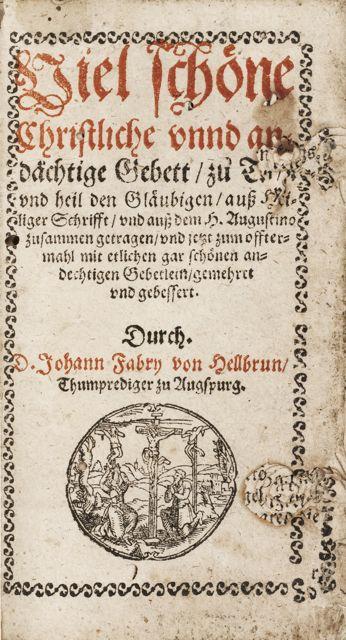 Viel schöne
Christliche vnnd an-
dächtige Gebett / zu
vnd heil den Gläubigen / auß
liger Schrifft / vnd auß dem H. Augustino
zusammen getragen / vnd jetzt zum offter-
mahl mit etlichen gar schönen an-
dechtigen Gebetlein / gemehret
vnd gebessert.
Durch.
D. Johann Fabry von Hellbrun /
Thumprediger zu Augspurg.